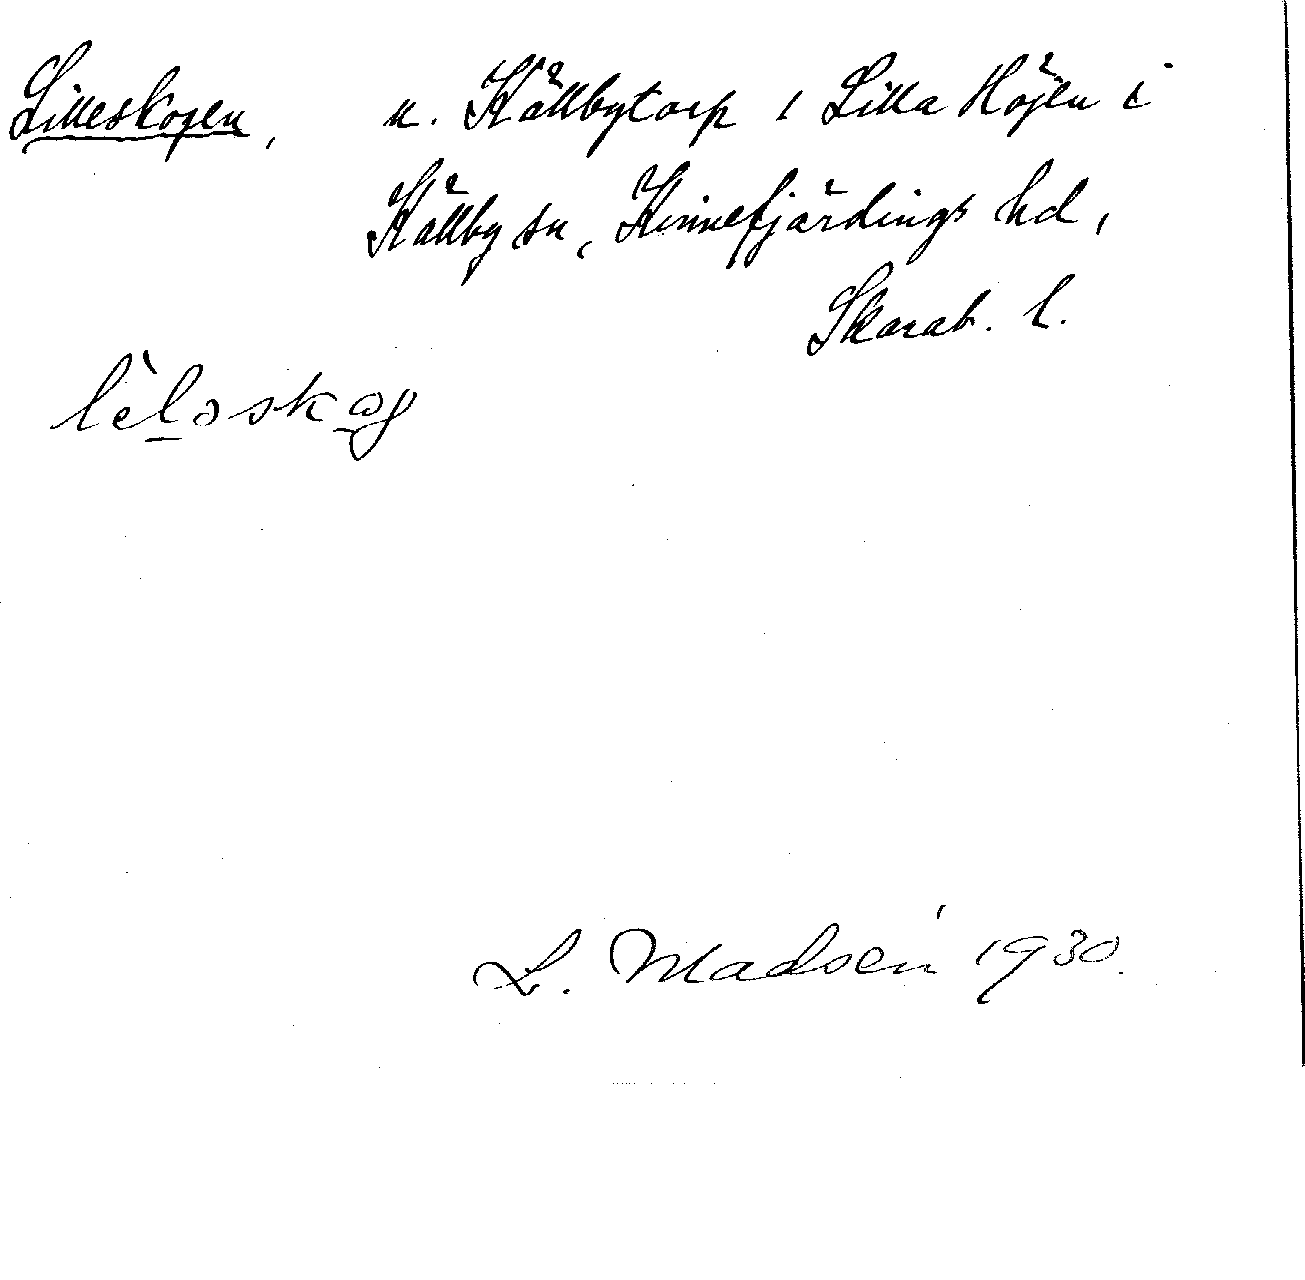 Lilleskogen, u. Källbytorp 1 Lilla Höjen i
Källby sn, Kinnefjärdings hd,
Skarab. l.
lèl̲əskog
L. Madsén 1930.